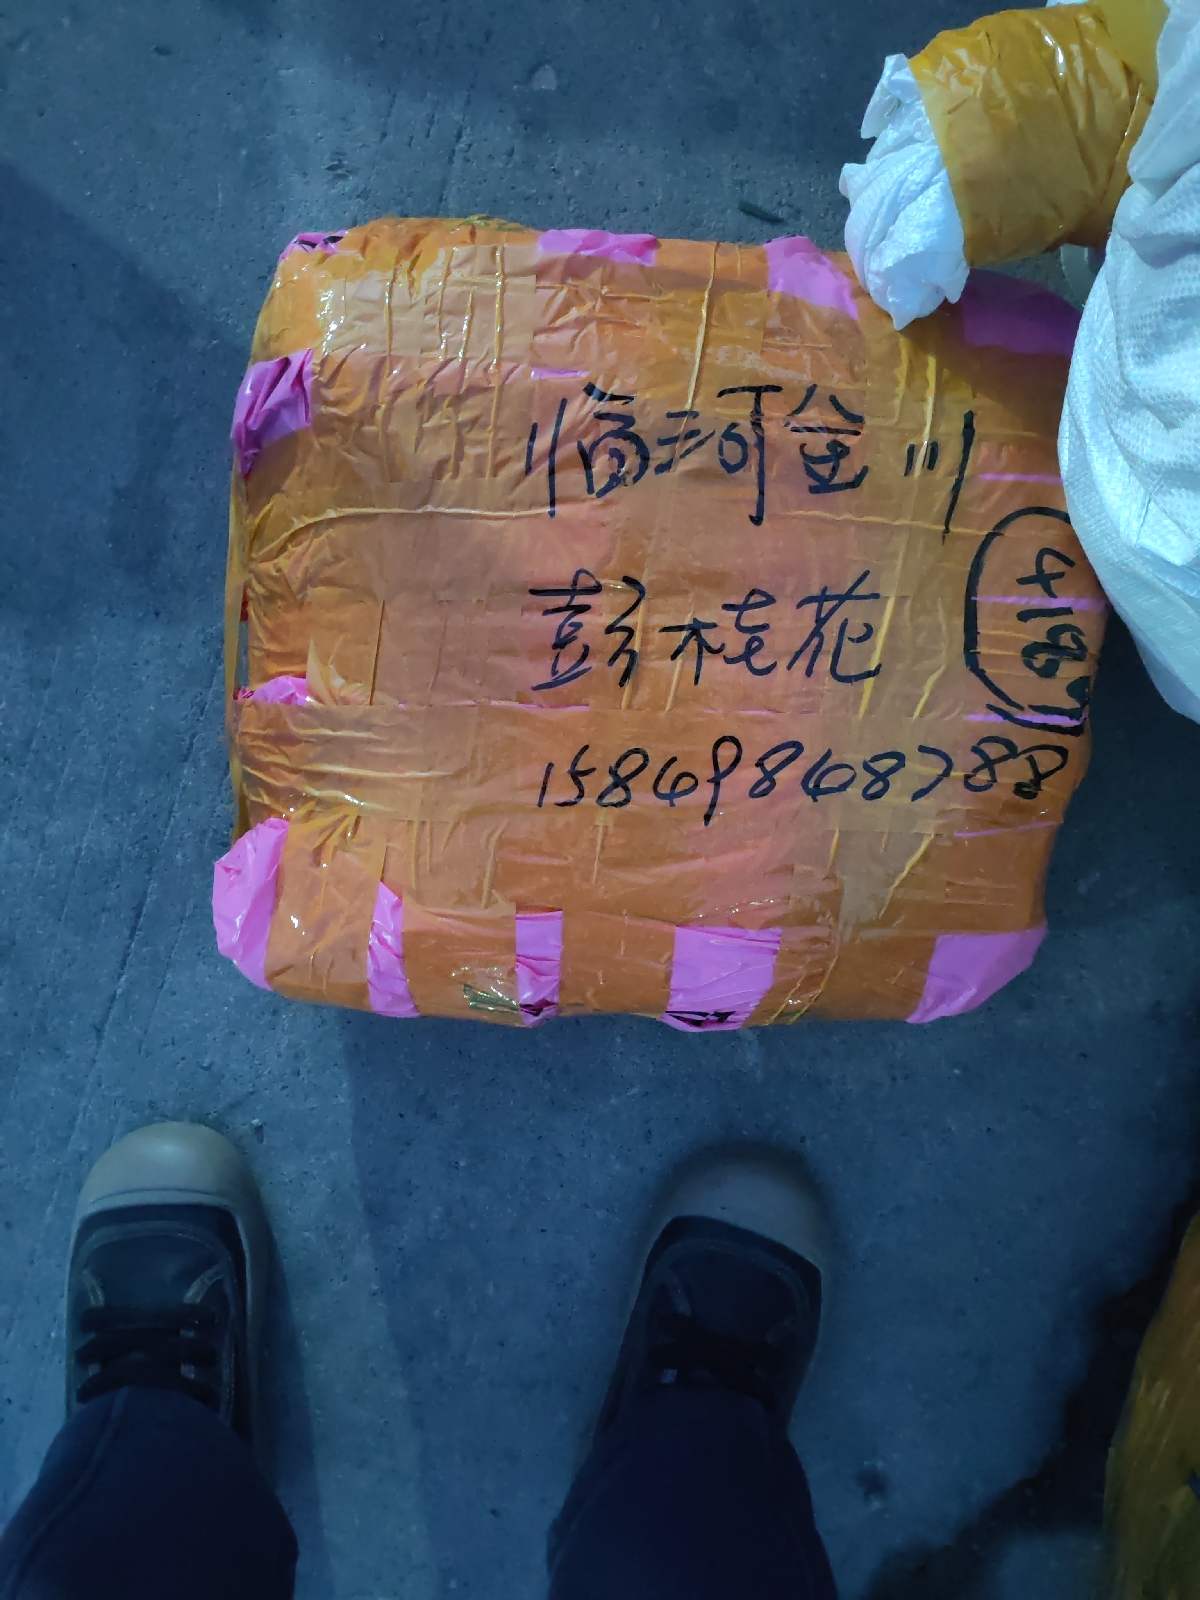 临河金川
彭桂花
15849868788